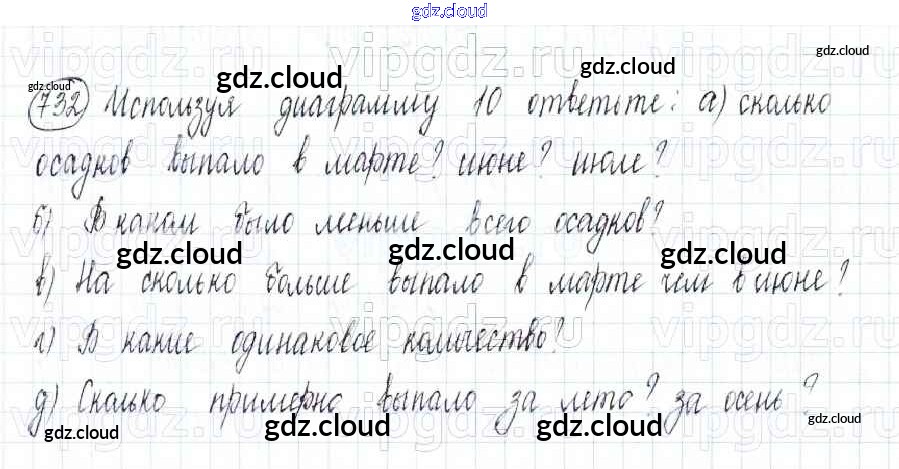 gdz.cloud
gdz.cloud
gdz.cloud gdz.cloud gdz.cloud
732 Используя диаграмму 10 ответьте: а) сколько
осадков выпало в марте? июне? июле?
б) В каком было меньше всего осадков?
gdz.cloud gdz.cloud gdz.cloud
в) На сколько больше выпало в марте чем в июне?
г) В какие одинаковое количество?
д) Сколько примерно выпало за лето? за осень?
gdz.cloud gdz.cloud gdz.cloud gdz.cloud